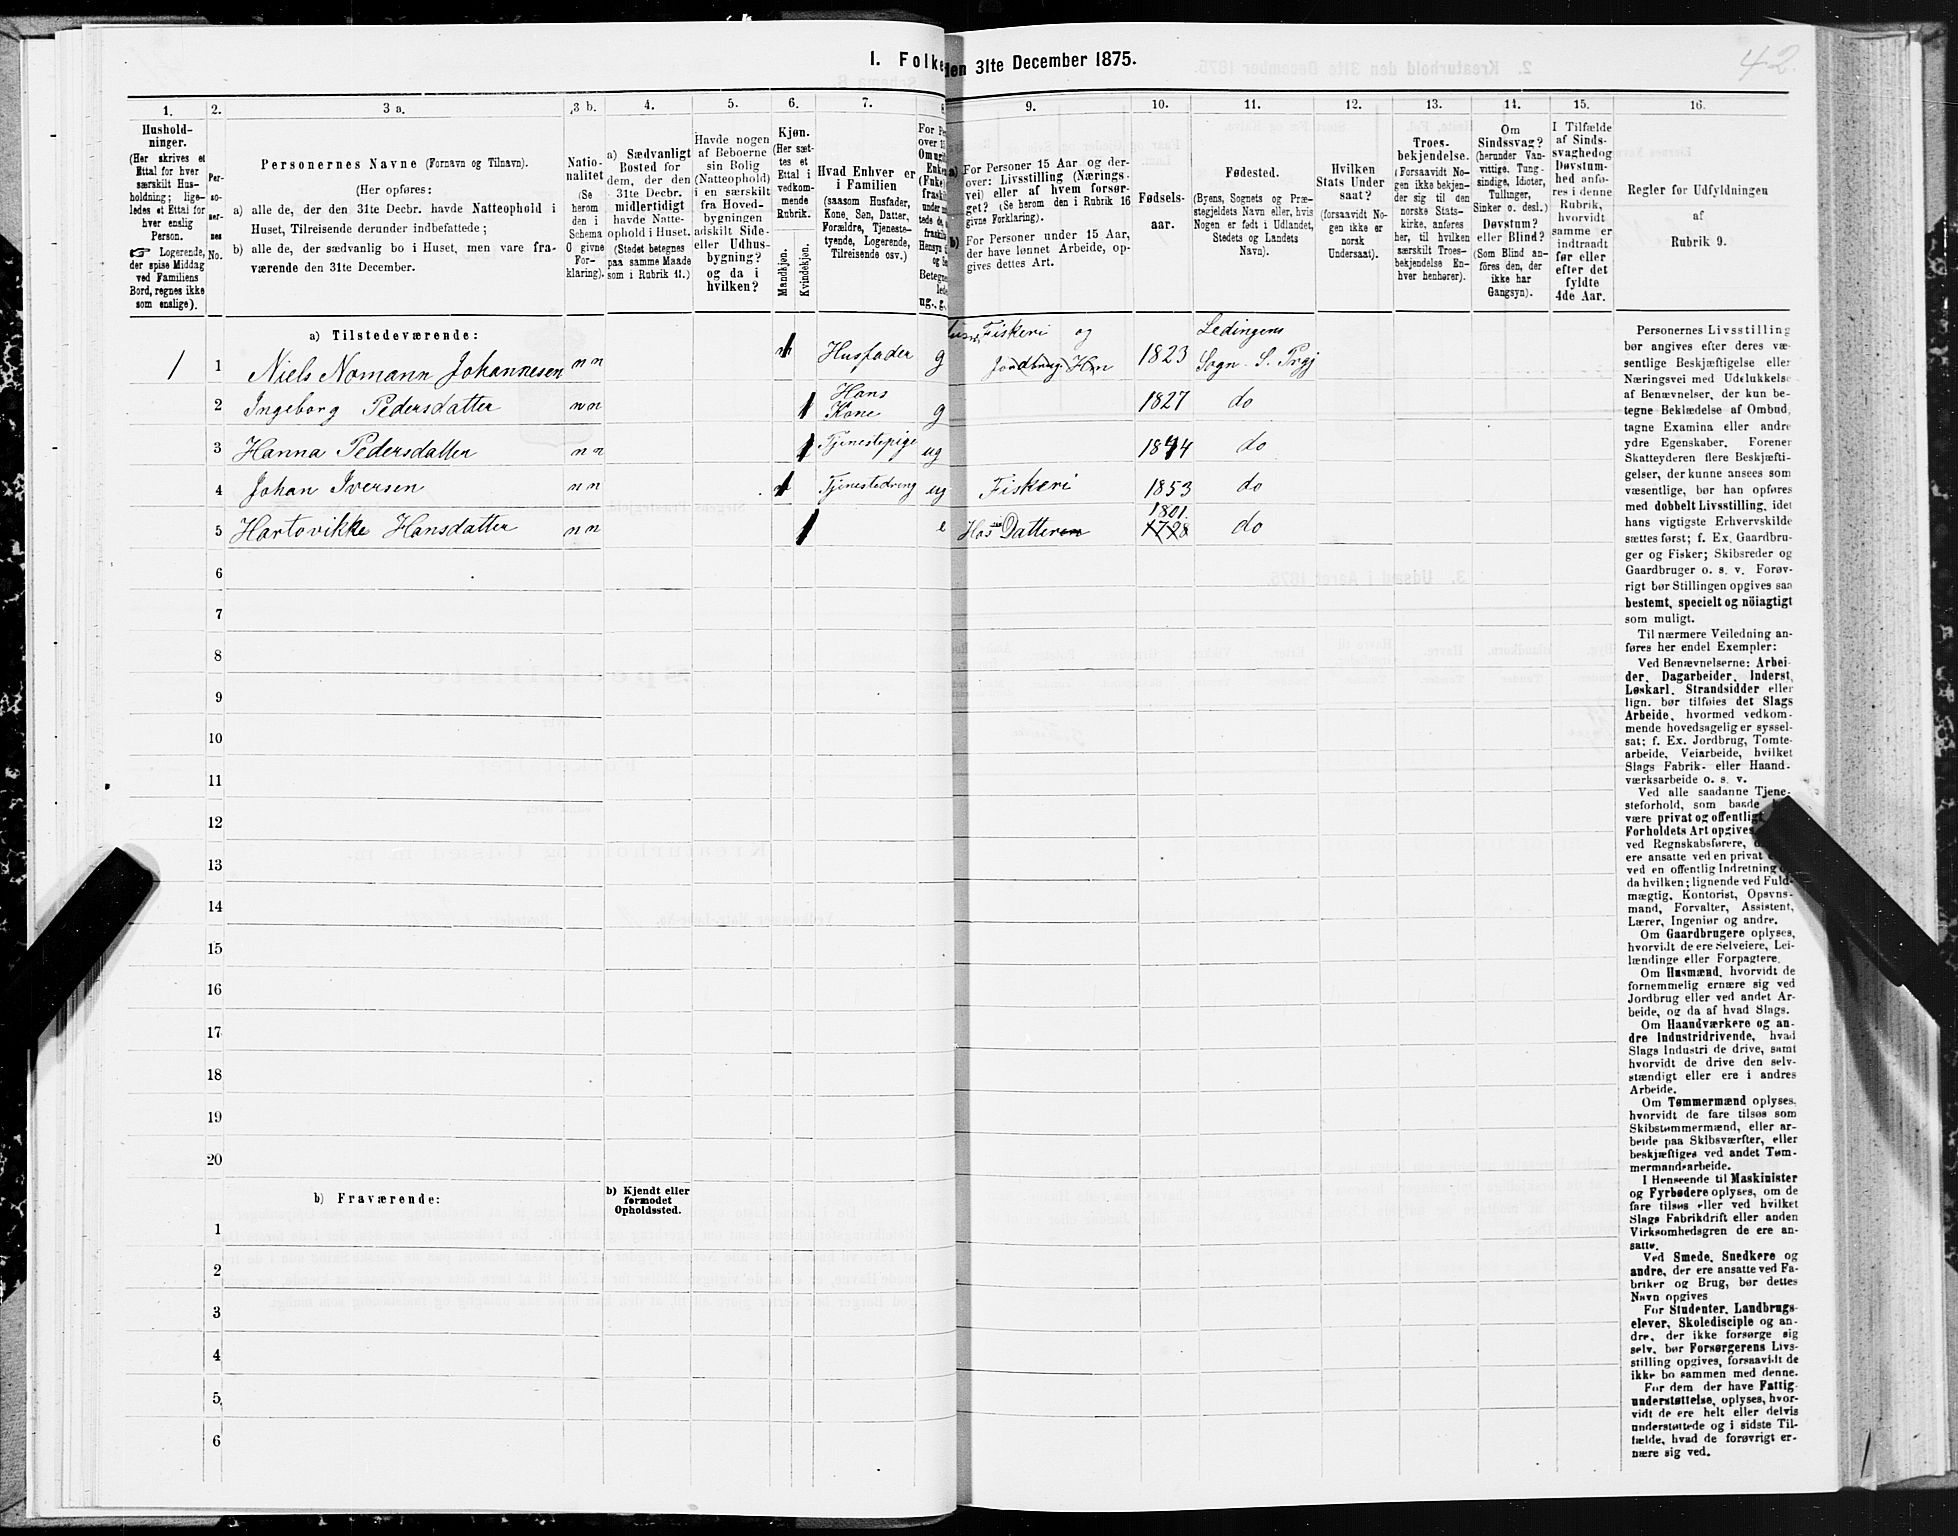 42.
I. Folke
den 31te December 1875.
1.
2.
3 a.
3 b.
4.
5.
6.
7.
8
9.
10.
11.
12.
13.
14.
15.
16.
Hushold-
ninger.
(Her skrives et
Ettal for hver
særskilt Hus-
holdning; lige-
ledes et Ettal for
hver enslig
Person.
☞ Logerende,
der spise Middag
ved Familiens
Bord, regnes ikke
som enslige).
Per-
so-
ner-
nes
No.
Personernes Navne (Fornavn og Tilnavn).
(Her opføres:
a) alle de, der den 31te Decbr. havde Natteophold i
Huset, Tilreisende derunder indbefattede;
b) alle de, der sædvanlig bo i Huset, men vare fra-
værende den 31te December.
Natio-
nalitet
(Se
herom
den i
Schema
O givne
For-
klaring).
a) Sædvanligt
Bosted for
dem, der den
31te Decbr.
midlertidigt
havde Natte-
ophold i Huset.
(Stedet betegnes
paa samme Maade
som i Rubrik 11.)
Havde nogen
af Beboerne
sin Bolig
(Natteophold)
i en særskilt
fra Hoved-
bygningen
adskilt Side-
eller Udhus-
bygning?
og da i
hvilken?
Kjøn.
(Her sæt-
tes et
Ettal i
vedkom-
mende
Rubrik.
Mandkjøn.
Kvindekjøn.
Hvad Enhver er
i Familien
(saasom Husfader,
Kone, Søn, Datter,
Forældre, Tjeneste-
tyende, Logerende,
Tilreisende osv.)
For Pe
over 15
Om ugif
Enken
(Fuke)
fraskil
under
tede de,
fraskil
Hensyn
og Se
Betegne
lede
ug., g.,
a)
For Personer 15 Aar og der-
over: Livsstilling (Nærings-
vei) eller af hvem forsør-
get? (Se herom den i Rubrik 16
givne Forklaring).
b)
For Personer under 15 Aar,
der have lønnet Arbeide, op-
gives dettes Art.
Fødsels-
aar.
Fødested.
(Byens, Sognets og Præ-
stegjeldets Navn eller, hvis
Nogen er født i Udlandet,
Stedets og Landets
Navn).
Hvilken
Stats Under
saat?
(forsaavidt No-
gen ikke er
norsk
Undersaat).
Troes-
bekjendelse.
(Forsaavidt No-
gen ikke bekjen-
der sig til den
norske Stats-
kirke, anføres
her, til hvilken
særskilt Troes-
bekjendelse En-
hver henhører).
Om
Sindssvag?
(herunder Van-
vittige, Tung-
sindige, Idioter,
Tullinger,
Sinker o. desl.)
Døvstum?
eller Blind?
(Som Blind an-
føres den, der
ikke har
Gangsyn).
I Tilfælde
af Sinds-
svaghed og
Døvstum-
hed anfø-
res i denne
Rubrik,
hvorvidt
samme er
indtraadt
før eller
efter det
fyldte
4de Aar.
Regler for Udfyldningen
af
Rubrik 9.
a) Tilstedeværende:
1 1 Niels Nomann Johannesen n n 1 Husfader g Fiskeri og Jordbrug. Hm 1823 Ledingens Sogn. S. Prgj
2 Ingeborg Pedersdatter n n 1 Hans Kone g 1827 do
3 Hanna Pedersdatter n n 1 Tjenestepige ug 1844 do
4 Johan Iversen n n 1 Tjenestedreng ug Fiskeri 1853 do
5 Hartovikke Hansdatter n n 1 e Hos Datteren 1801. 1798 do
6
7
8
9
10
11
12
13
14
15
16
17
18
19
20
b) Fraværende:
b) Kjendt eller
formodet
Opholdssted.
1
2
3
4
5
6
Personernes Livsstilling
bør angives efter deres væ-
sentlige Beskjæftigelse eller
Næringsvei med Udelukkelse
af Benævnelser, der kun be-
tegne Beklædelse af Ombud,
tagne Examina eller andre
ydre Egenskaber. Forener
Skatteyderen flere Beskjæfti-
gelser, der kunne ansees som
væsentlige, bør han opføres
med dobbelt Livsstilling, idet
hans vigtigste Erhvervskilde
sættes først; f. Ex. Gaardbru-
ger og Fisker; Skibsreder og
Gaardbruger o. s. v. Forøv-
rigt bør Stillingen opgives saa
bestemt, specielt og nöiagtigt
som muligt.
Til nærmere Veiledning an-
føres her endel Exempler:
Ved Benævnelserne: Arbei-
der, Dagarbeider, Inderst,
Løskarl, Strandsidder eller
lign. bør tilføies det Slags
Arbeide, hvormed vedkom-
mende hovedsagelig er syssel-
sat; f. Ex. Jordbrug, Tomte-
arbeide, Veiarbeide, hvilket
Slags Fabrik- eller Haand-
værksarbeide o. s. v.
Ved alle saadanne Tjene-
steforhold, som baade
være privat og offentligt
Forholdets Art opgives,
ved Regnskabsførere,
ere ansatte ved en privat
ved en offentlig Indretning
da hvilken; lignende ved Fuld-
mægtig, Kontorist, Opsyns-
mand, Forvalter, Assistent,
Lærer, Ingeniør og andre.
Om Gaardbrugere oplyses,
hvorvidt de ere Selveiere, Lei-
lændinge eller Forpagtere.
Om Husmænd, hvorvidt de
fornemmelig ernære sig ved
Jordbrug eller ved andet Ar-
beide, og da af hvad Slags.
Om Haandværkere og an-
dre Industridrivende, hvad
Slags Industri de drive, samt
hvorvidt de drive den selv-
stændigt eller ere i andres
Arbeide.
Om Tømmermænd oplyses,
hvorvidt de fare tilsøs som
Skibstømmermænd, eller ar-
beide paa Skibsværfter, eller
beskjæftiges ved andet Tøm-
mermandsarbeide.
I Henseende til Maskinister
og Fyrbødere oplyses, om de
fare tilsøs eller ved hvilket
Slags Fabrikdrift eller anden
Virksomhedsgren de ere an-
satte.
Ved Smede, Snedkere og
andre, der ere ansatte ved Fa-
briker og Brug, bør dettes
Navn opgives
For Studenter, Landbrugs-
elever, Skoledisciple og an-
dre, der ikke forsørge sig
selv, bør Forsørgerens Livs-
stilling opgives, forsaavidt de
ikke bo sammen med denne.
For dem der have Fattig-
understøttelse, oplyses, hvor-
vidt de ere helt eller delvis
understøttede og i sidste Til-
fælde, hvad de forøvrigt er-
nære sig ved.